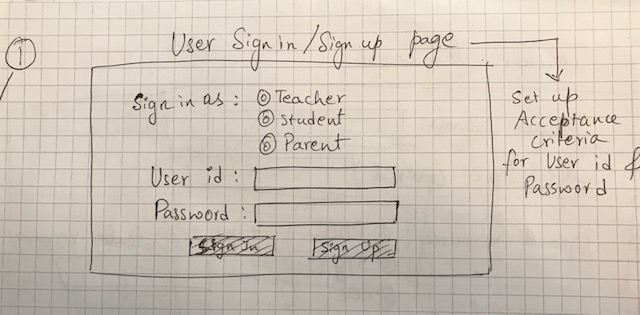 1
User Sign in / Sign up page
Sign in as : Teacher
Student
Parent
User id :
Password :
Sign In Sign Up
Set up
Acceptance
Criteria
for User id &
Password